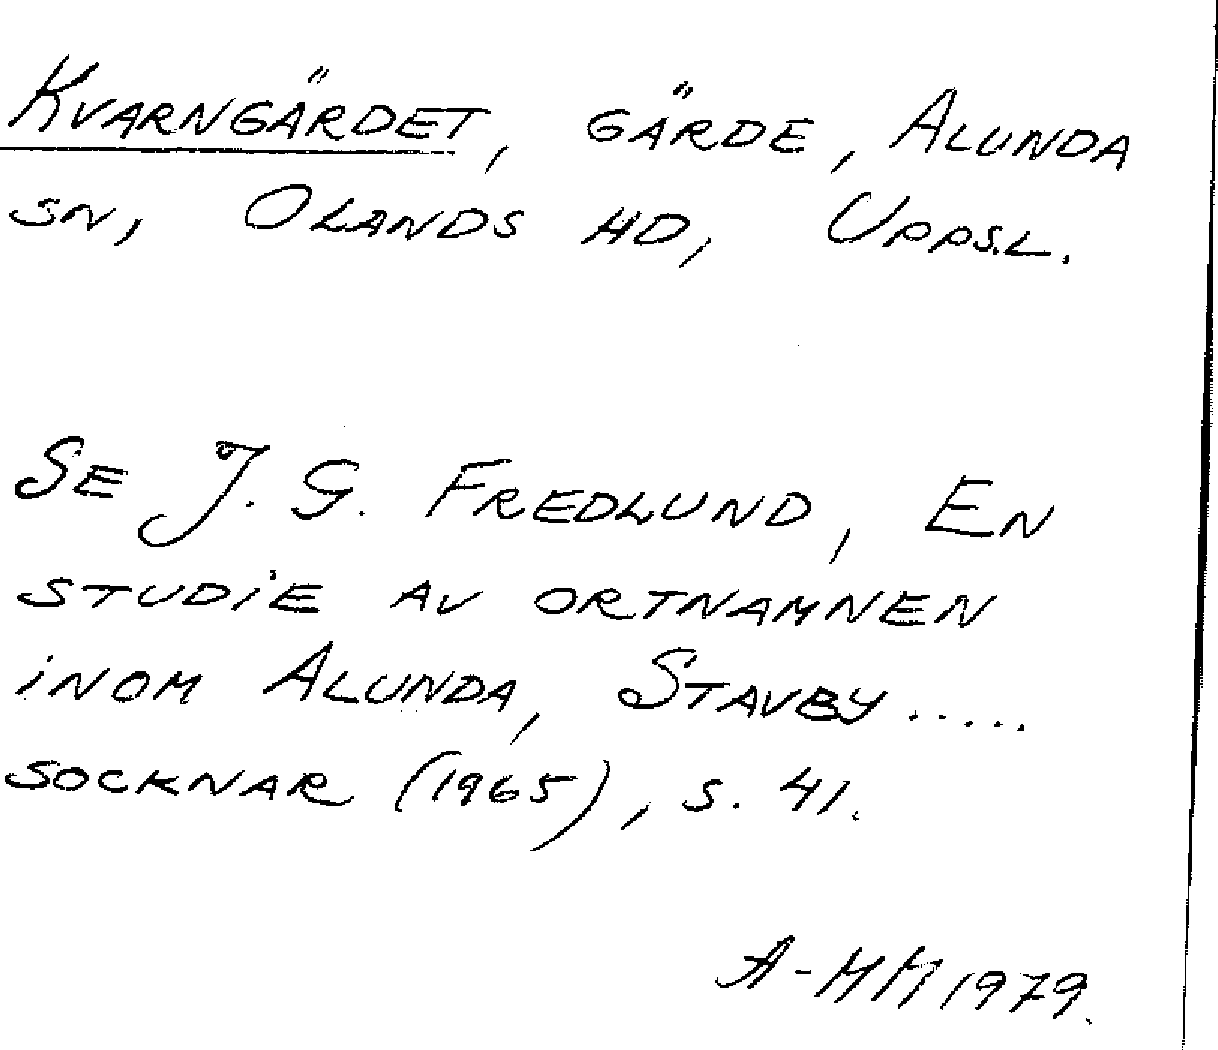 KVARNGÄRDET, GÄRDE, ALUNDA
SN, OLANDS HD, UPPS.L.
SE J. G. FREDLUND, EN
STUDIE AV ORTNAMNEN
INOM ALUNDA, STAVBY.....
SOCKNAR (1965), S. 41.
A-MM 1979.